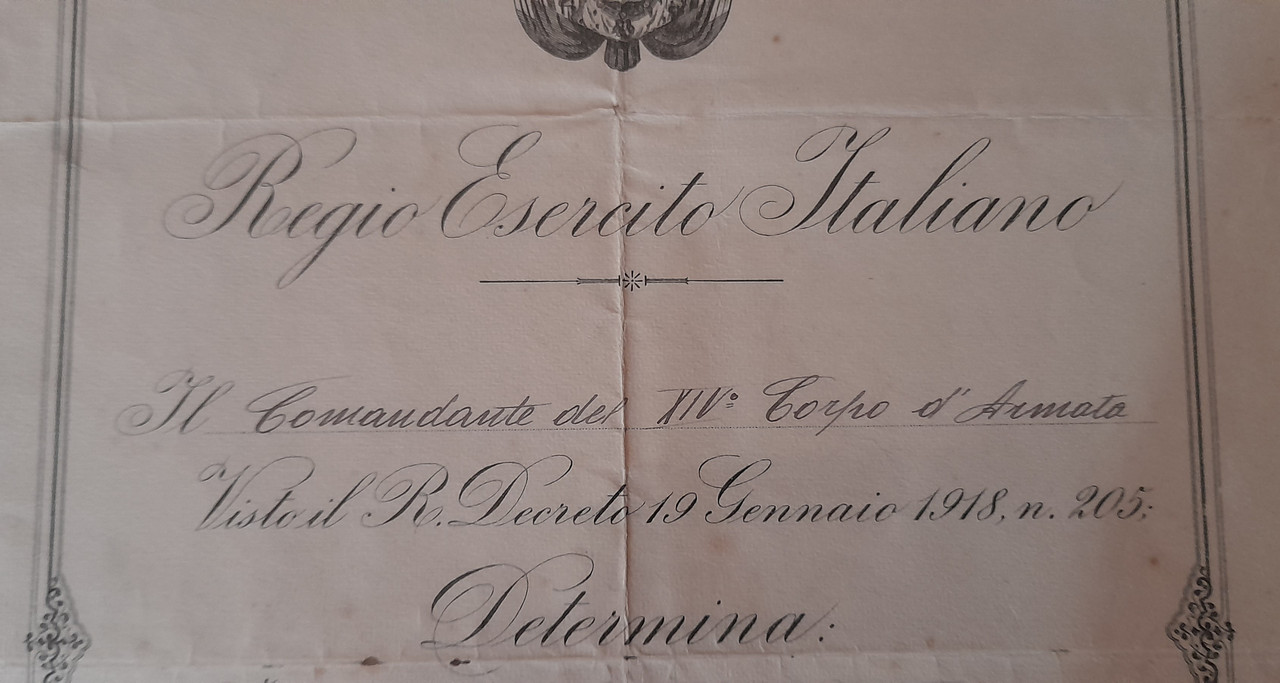 Regio Esercito Italiano
Il Comandante del XIV° Corpo d'Armata
Visto il R. Decreto 19 Gennaio 1918, n. 205;
Determina: